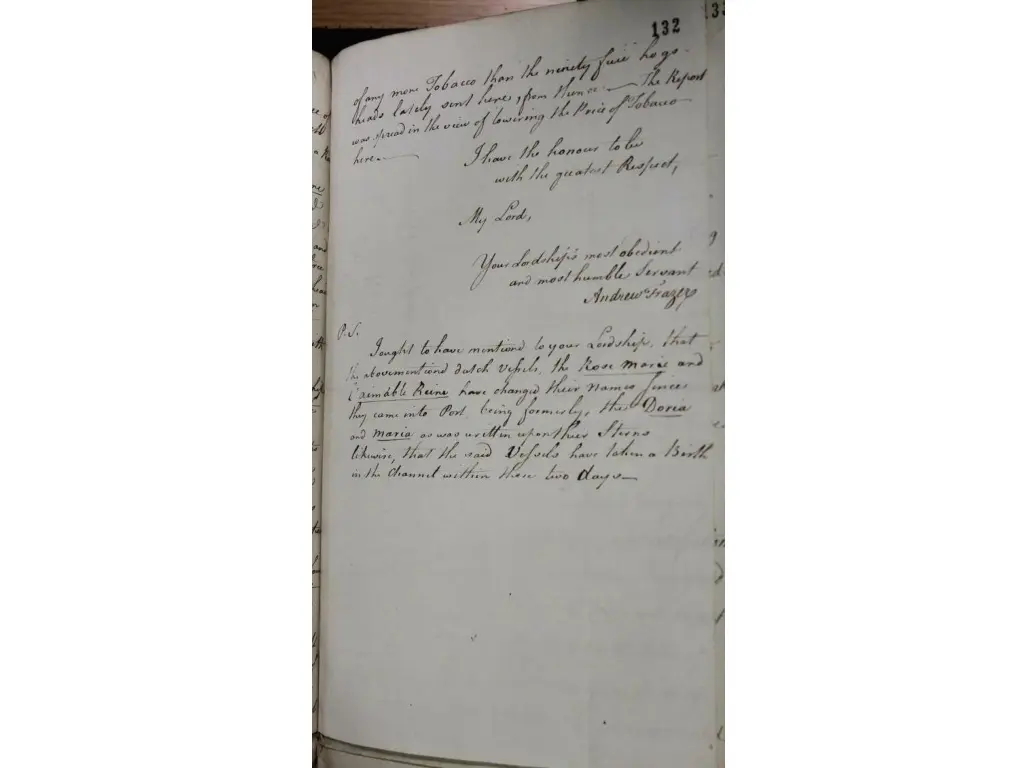 132
of any more Tobacco than the ninety five hogs-
heads lately sent here, from thence — The Report
was spread in the view of lowering the Price of Tobacco
here —
I have the honour to be
with the greatest Respect,
My Lord,
Your Lordship's most obedient
and most humble Servant
Andrew Frazer
P.S.
I ought to have mentioned to your Lordship, that
the abovementioned dutch Vessels, the Rose Marie and
L'aimable Reine have changed their names sence
they came into Port, being formerly the Doria
and Maria as was written upon their Sterns
likewise, that the said Vessels have taken a Birth
in the Channel within these two days —